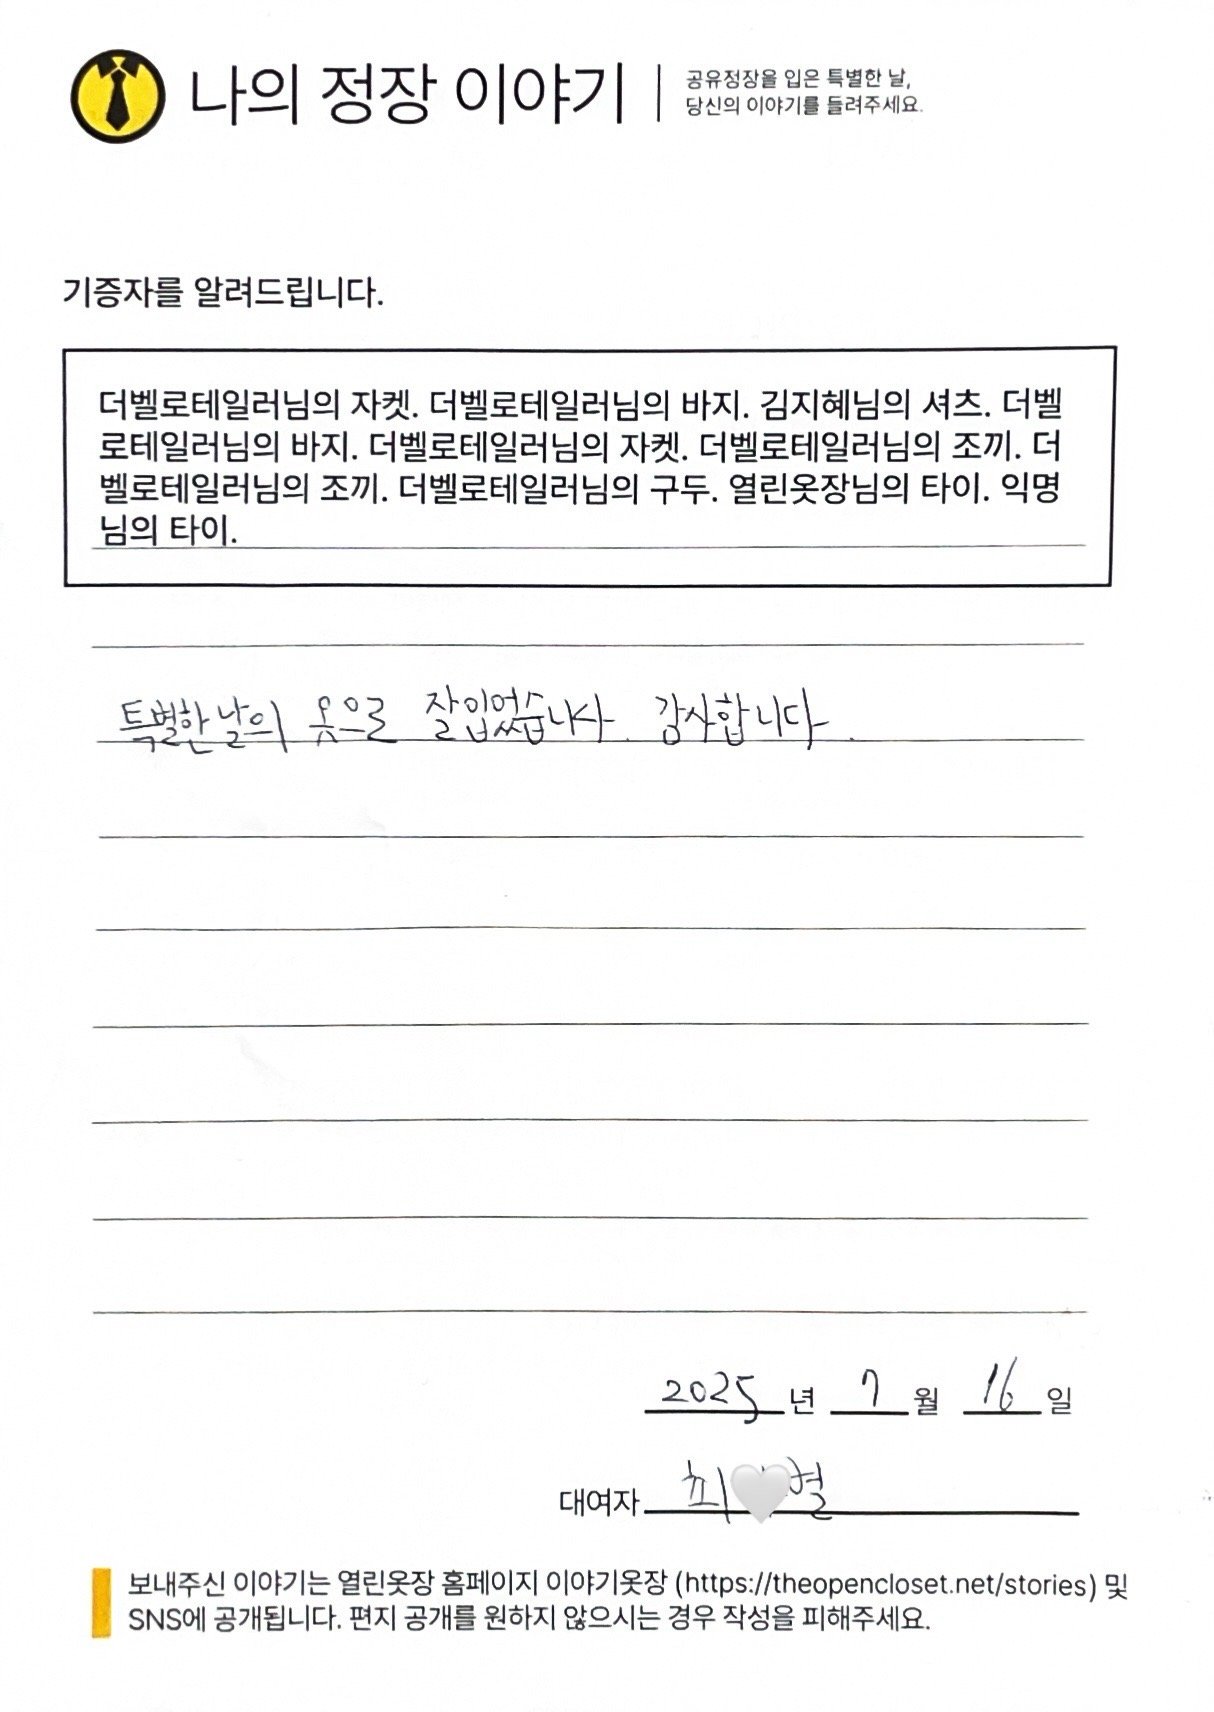 나의 정장 이야기
공유정장을 입은 특별한 날,
당신의 이야기를 들려주세요.
기증자를 알려드립니다.
더벨로테일러님의 자켓. 더벨로테일러님의 바지. 김지혜님의 셔츠. 더벨
로테일러님의 바지. 더벨로테일러님의 자켓. 더벨로테일러님의 조끼. 더
벨로테일러님의 조끼. 더벨로테일러님의 구두. 열린옷장님의 타이. 익명
님의 타이.
특별한 날의 옷으로 잘입었습니다. 감사합니다.
2025 년 7 월 16 일
대여자 최
보내주신 이야기는 열린옷장 홈페이지 이야기옷장 (https://theopencloset.net/stories) 및
SNS에 공개됩니다. 편지 공개를 원하지 않으시는 경우 작성을 피해주세요.